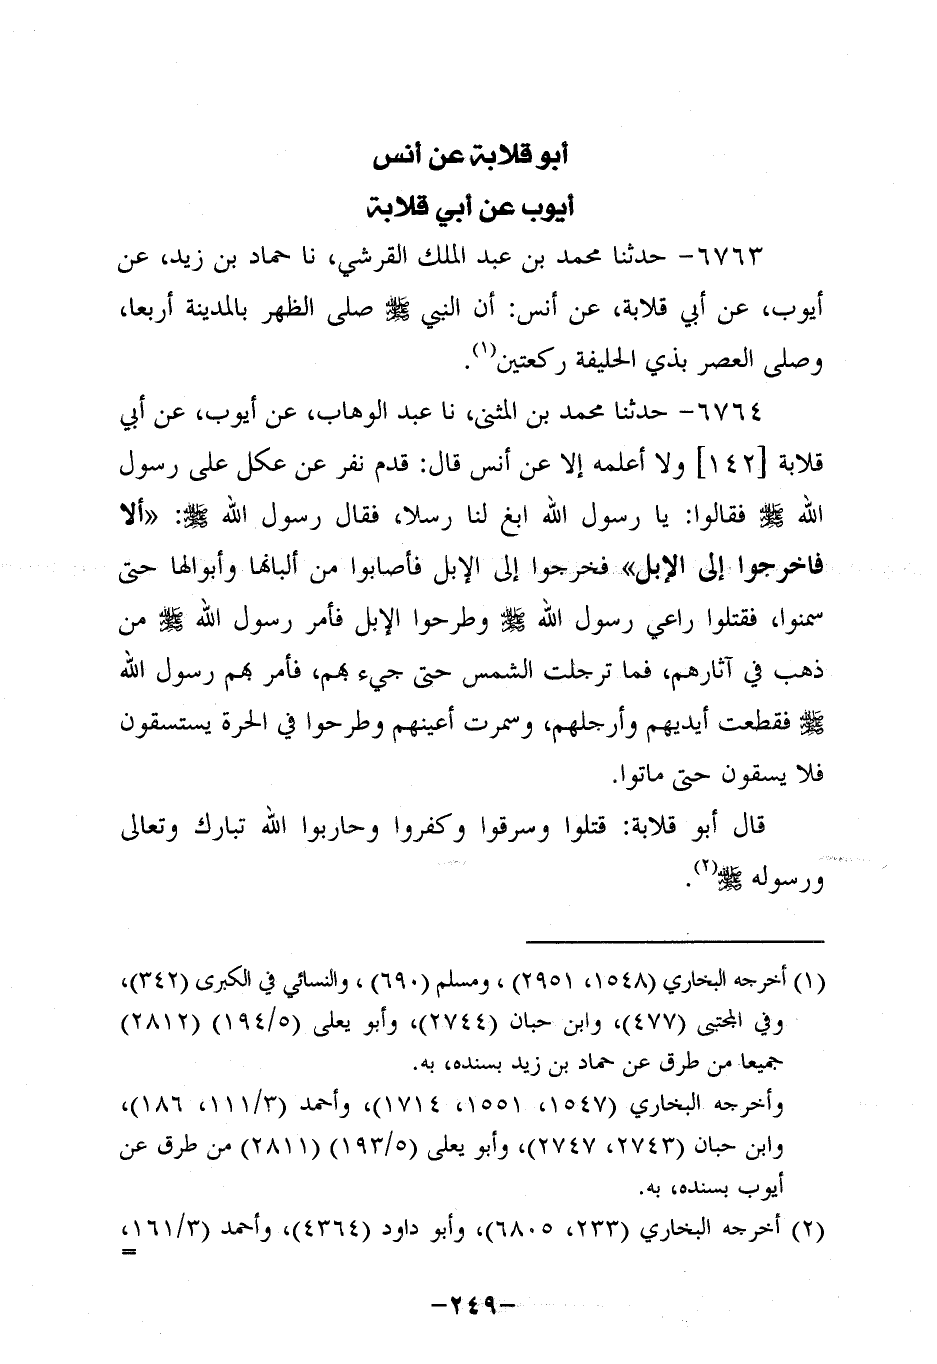 أبو قلابة عن أنس
أيوب عن أبي قلابة
٦٧٦٣- حدثنا محمد بن عبد الملك القرشي، نا حماد بن زيد، عن
أيوب، عن أبي قلابة، عن أنس: أن النبي ﷺ صلى الظهر بالمدينة أربعا،
وصلى العصر بذي الحليفة ركعتين(١).
٦٧٦٤- حدثنا محمد بن المثنى، نا عبد الوهاب، عن أيوب، عن أبي
قلابة [١٤٢] ولا أعلمه إلا عن أنس قال: قدم نفر عن عكل على رسول
الله ﷺ فقالوا: يا رسول الله ابغ لنا رسلا، فقال رسول الله ﷺ: «ألا
فاخرجوا إلى الإبل» فخرجوا إلى الإبل فأصابوا من ألبانها وأبوالها حتى
سمنوا، فقتلوا راعي رسول الله ﷺ وطرحوا الإبل فأمر رسول الله ﷺ من
ذهب في آثارهم، فما ترجلت الشمس حتى جيء بهم، فأمر بهم رسول الله
ﷺ فقطعت أيديهم وأرجلهم، وسمرت أعينهم وطرحوا في الحرة يستسقون
فلا يسقون حتى ماتوا.
قال أبو قلابة: قتلوا وسرقوا وكفروا وحاربوا الله تبارك وتعالى
ورسوله ﷺ(٢).
(١) أخرجه البخاري (١٥٤٨، ٢٩٥١) ، ومسلم (٦٩٠) ، والنسائي في الكبرى (٣٤٢)،
وفي المجتبى (٤٧٧)، وابن حبان (٢٧٤٤)، وأبو يعلى (١٩٤/٥) (٢٨١٢)
جميعا من طرق عن حماد بن زيد بسنده، به.
وأخرجه البخاري (١٥٤٧، ١٥٥١، ١٧١٤)، وأحمد (١١١/٣، ١٨٦)،
وابن حبان (٢٧٤٣، ٢٧٤٧)، وأبو يعلى (١٩٣/٥) (٢٨١١) من طرق عن
أيوب بسنده، به.
(٢) أخرجه البخاري (٢٣٣، ٦٨٠٥)، وأبو داود (٤٣٦٤)، وأحمد (١٦١/٣،
=
-٢٤٩-